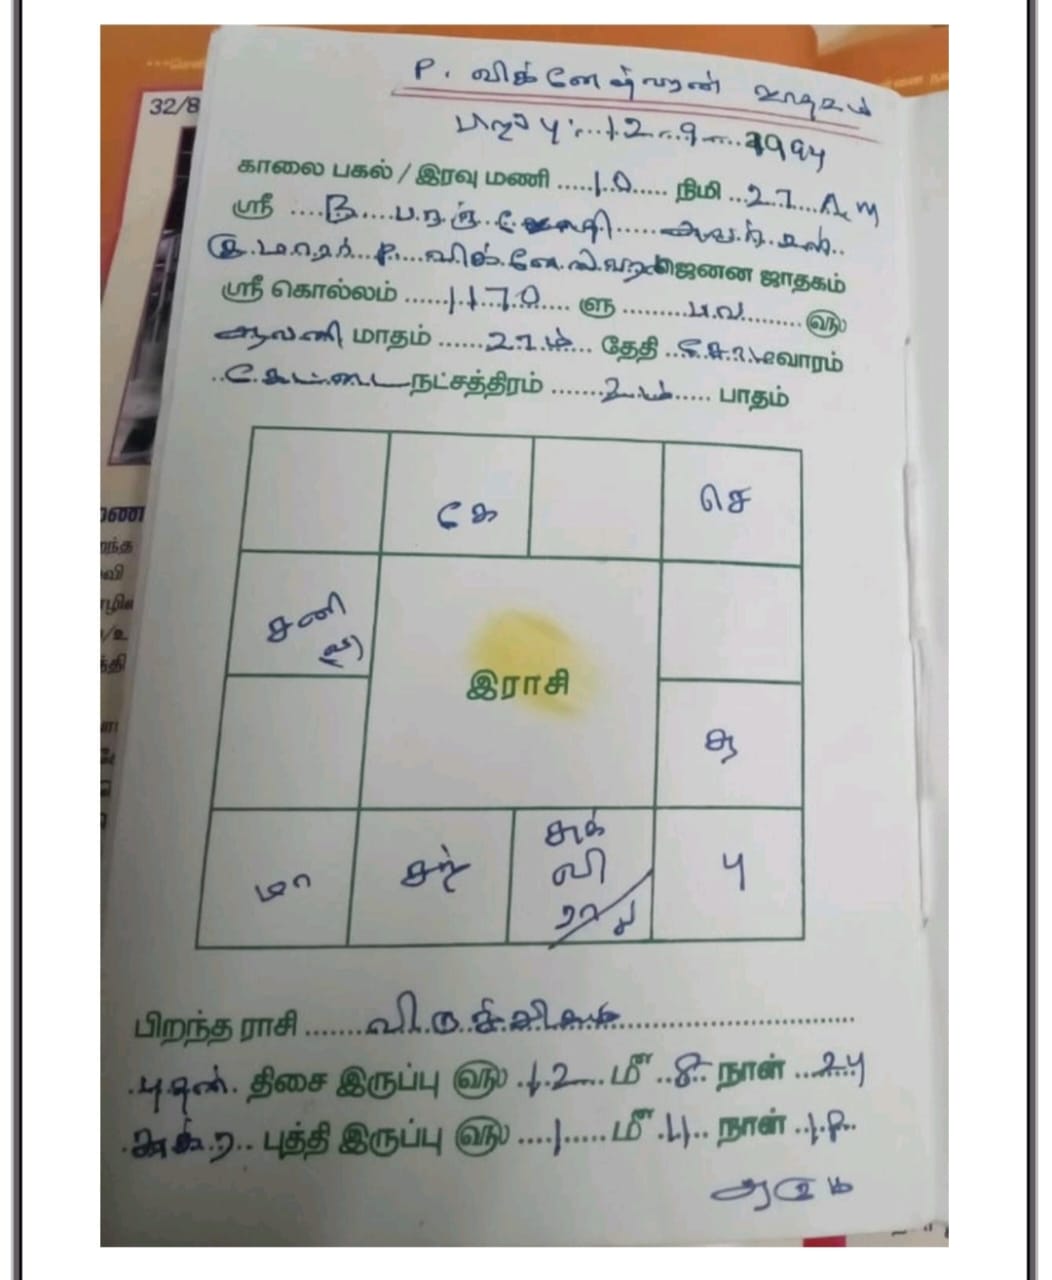 32/8
P. விக்னேஷ்வரன் ஜாதகம்
பிறப்பு:...12...9...1994
காலை பகல் / இரவு மணி .....10..... நிமி ...27....A.M
ஸ்ரீ ....B.... அவர்கள்..
குமாரர்..P....விக்னேஸ்வரன் ஜெனன ஜாதகம்
ஸ்ரீ கொல்லம் ......1170..... ளு .........பவ......... ௵
ஆவணி மாதம் ......27ம்... தேதி ..சோமவாரம்
..கேட்டை நட்சத்திரம் .......2ம்..... பாதம்
கே
செ
சனி
வ
இராசி
சூ
மா
சந்
சுக்
வி
ராகு
பு
பிறந்த ராசி .......விருச்சிகம்
.புதன். திசை இருப்பு ௵ .12... மீ ..8.. நாள் ...24
சுக்ர.. புத்தி இருப்பு ௵ ....1..... மீ .11.. நாள் .18..